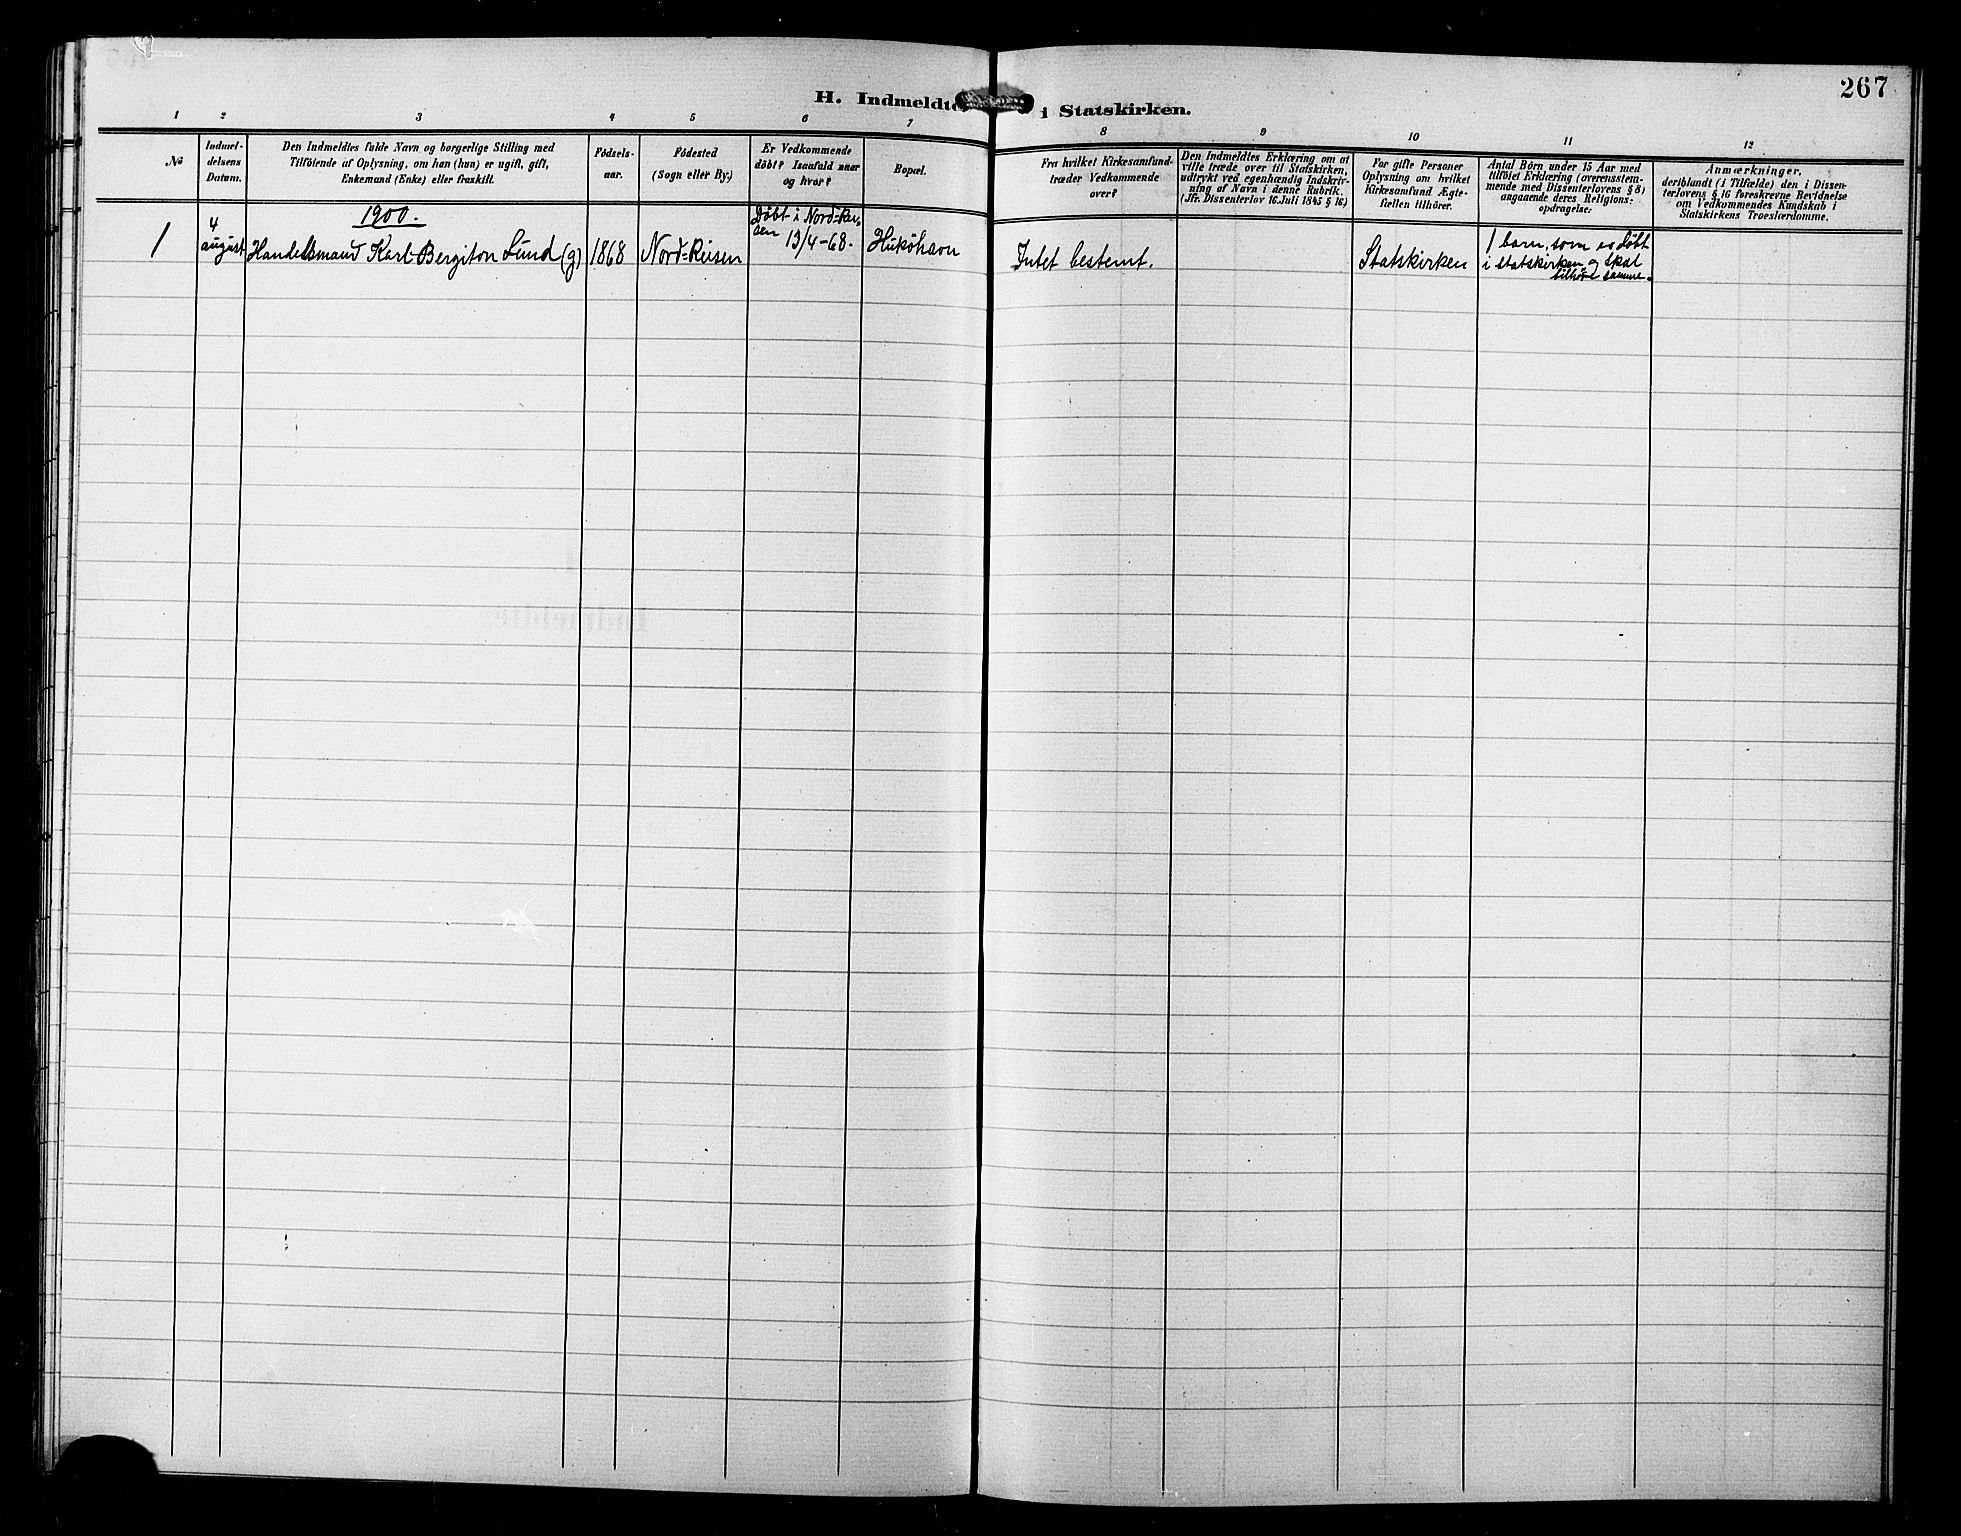 267
H. Indmeldte i Statskirken.
1 2 3 4 5 6 7 8 9 10 11 12
No
Indmel-
delsens
Datum.
Den Indmeldtes fulde Navn og borgerlige Stilling med
Tilföiende af Oplysning, om han (hun) er ugift, gift,
Enkemand (Enke) eller fraskilt.
Födsels-
aar.
Födested
(Sogn eller By.)
Er Vedkommende
döbt? Isaafald naar
og hvor?
Bopæl.
Fra hvilket Kirkesamfund
træder Vedkommende
over?
Den Indmeldtes Erklæring om at
ville træde over til Statskirken,
udtrykt ved egenhændig Indskriv-
ning af Navn i denne Rubrik.
(Jfr. Dissenterlov 16 Juli 1845 § 16)
For gifte Personer
Oplysning om hvilket
Kirkesamfund Ægte-
fællen tilhörer.
Antal Börn under 15 Aar med
tilföiet Erklæring (overensstem-
mende med Dissenterlovens § 8)
angaaende deres Religions:
opdragelse:
Anmærkninger,
deriblandt (i Tilfælde) den i Dissen-
terlovens § 16 foreskrevne Bevidnelse
om Vedkommendes Kundskab i
Statskirkens Troeslærdomme.
1900.
1
4
august
Handelsmand Karl Bergiton Lund (g)
1868
Nord-Reisen
Döbt i Nord-Rei-
sen
13/4-68.
Huköhavn
Intet bestemt.
Statskirken
1 barn, som er döbt
i statskirken og skal
tilhöre samme.